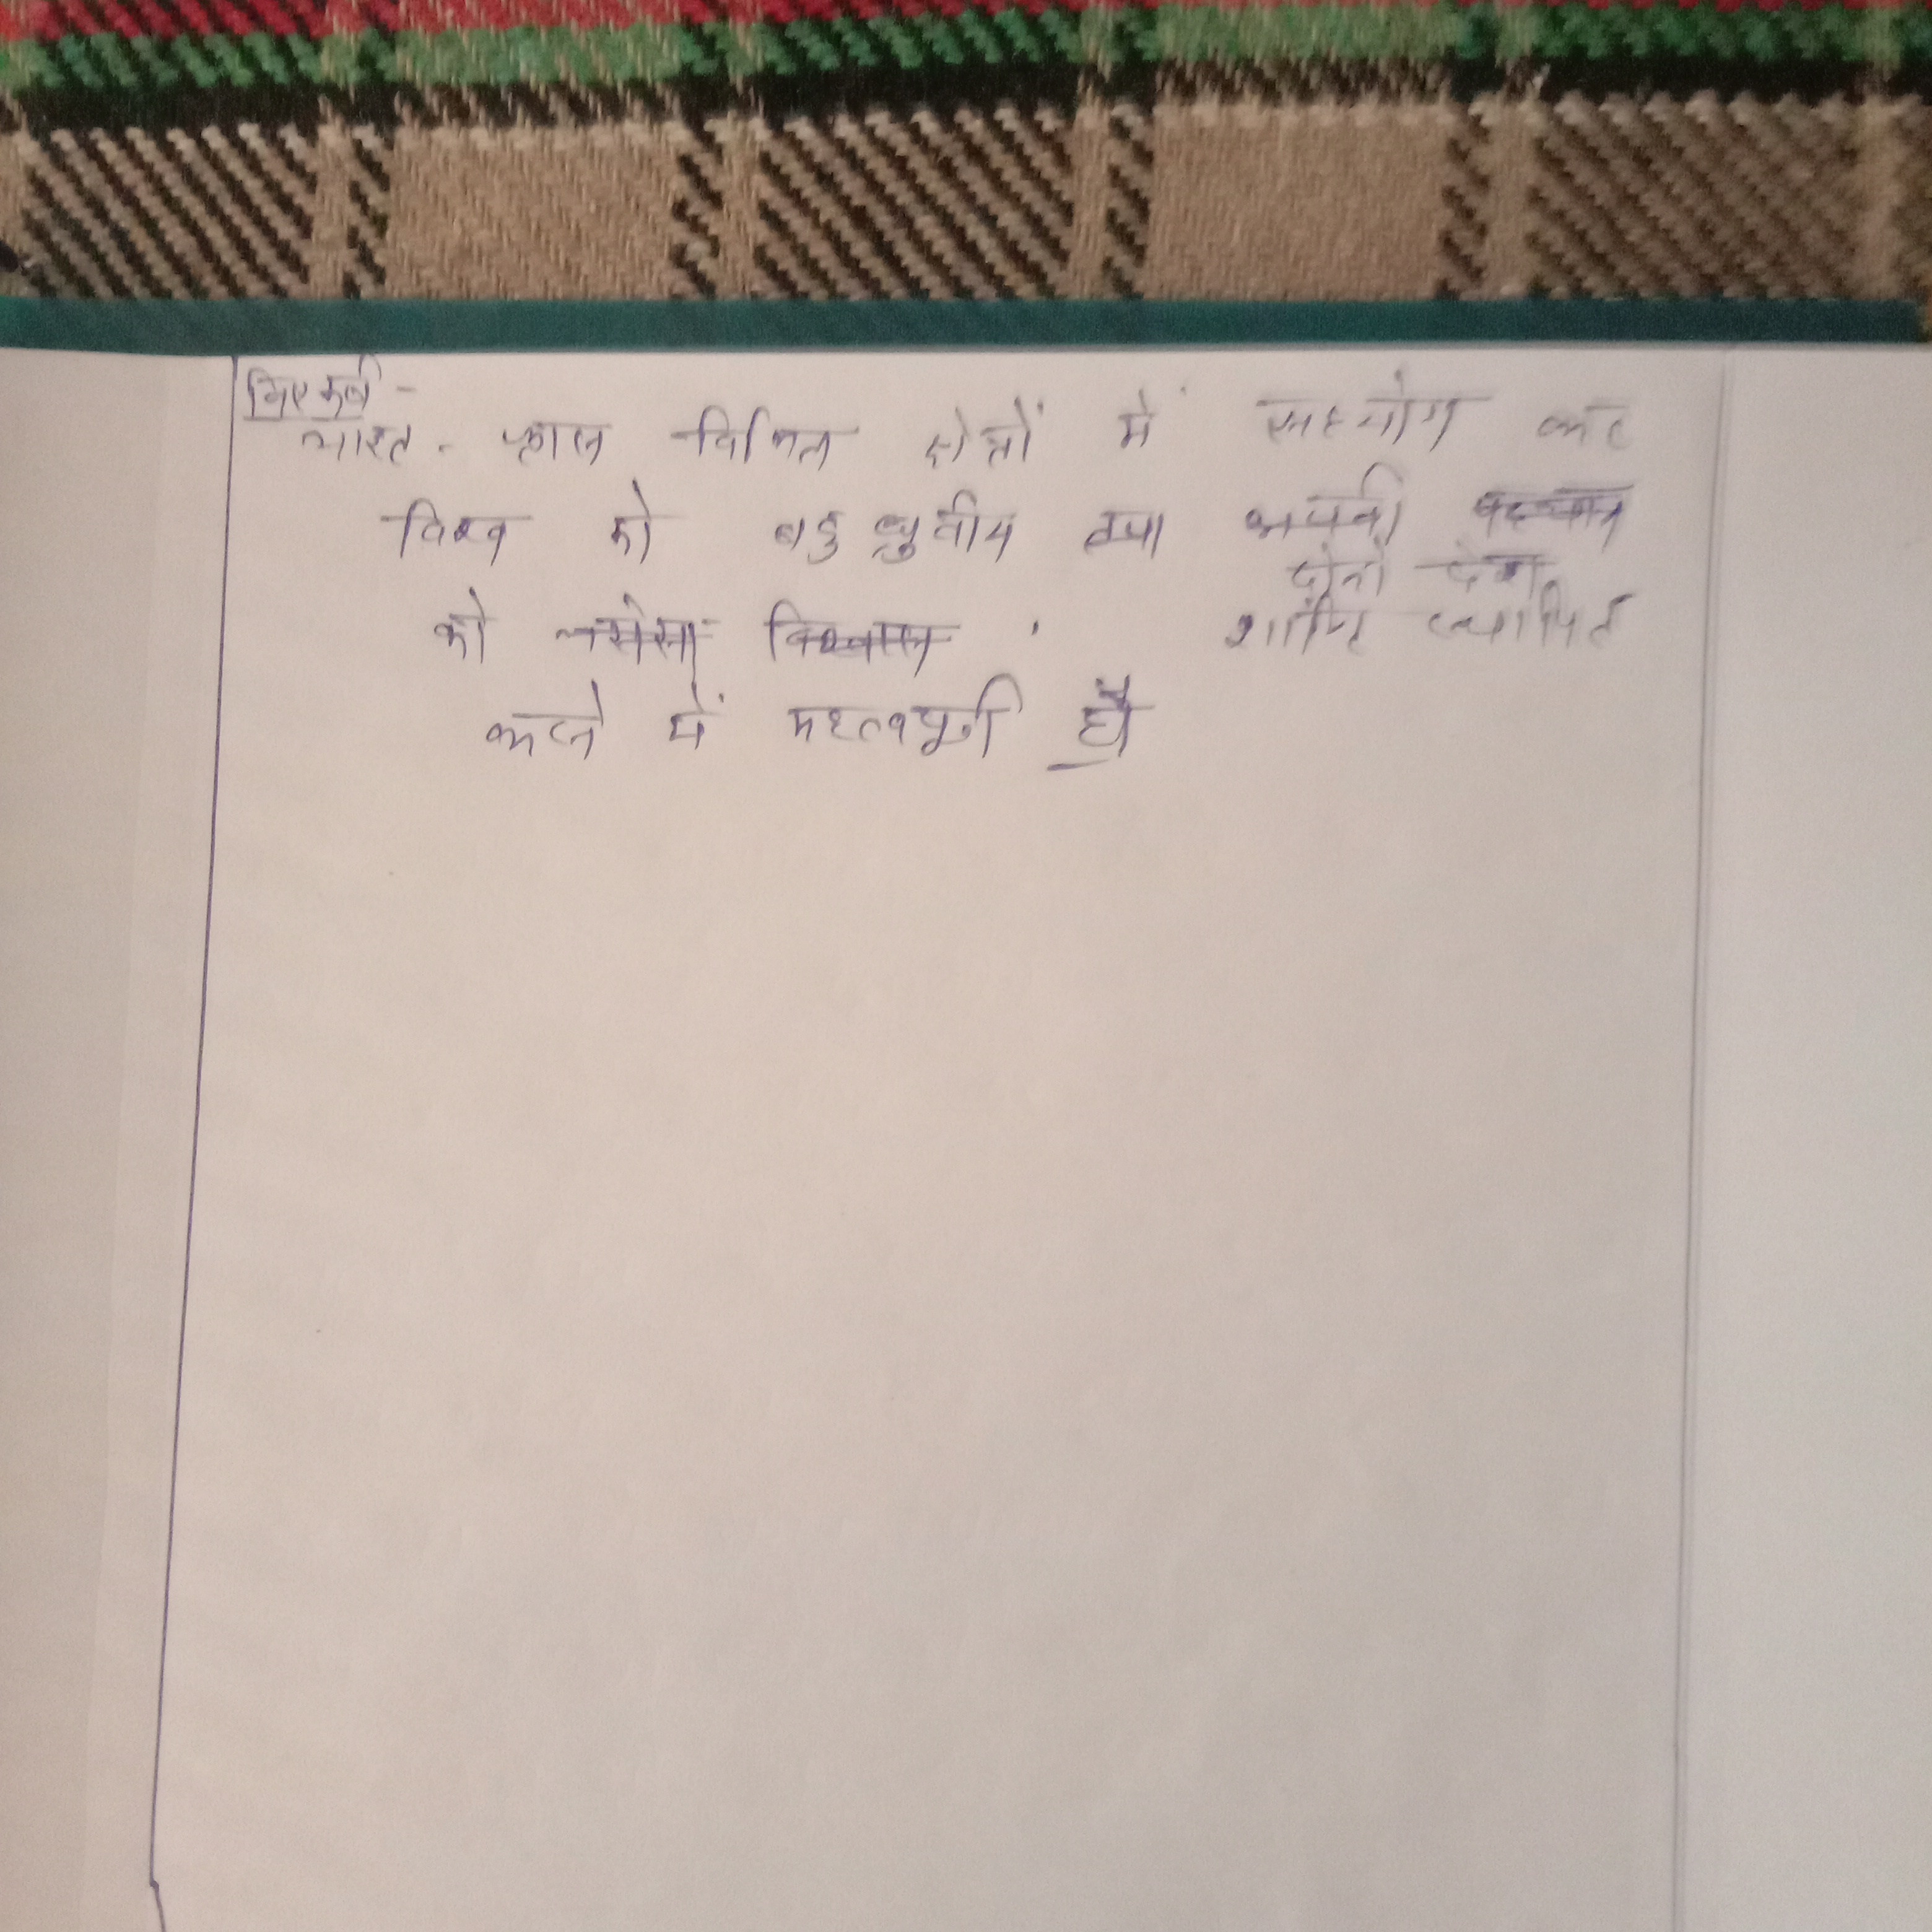 निष्कर्ष -
भारत - फ्रांस विभिन्न क्षेत्रों में सहयोग कर
विश्व को बहुध्रुवीय तथा अपनी
दोनों देश
को शांति स्थापित
करने में महत्वपूर्ण है